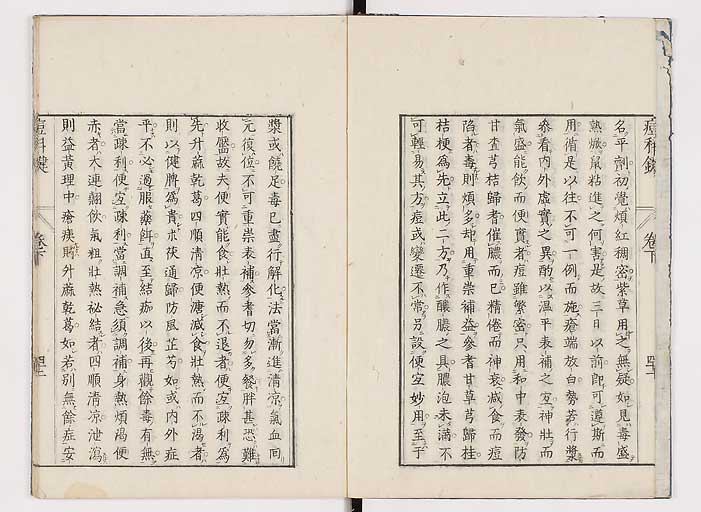 名平劑初覺煩紅稠密紫草用之無疑如見毒盛
熟㷟鼠粘進之何害是故三日以前卽可遵斯而
用循是以往不可一例而施瘡端放白勢若行漿
叅看內外虛實之異酌以溫平表補之宜神壯而
氣盛能飮而便實者痘雖繁密只用和中表發防
甘查芎桔歸者催膿而已精倦而神衰减食而痘
陷者毒則煩多却用重崇補益參耆甘草芎歸桂
桔梗爲先立此二方乃作釀膿之具膿泡未滿不
可輕易其方痘或變遷不常另設便宜妙用至于
痘科鍵
卷下
漿或饒足毒已盡行解化法當漸進清凉氣血囘
元復位不可重崇表補參耆切勿多餐胖甚恐難
收靨故夫便實能食壯熱而不退者便宜疎利爲
先升蔴乾葛四順清凉便溏减食壯熱而不渴者
則以健脾爲貴朮茯通歸防風芷芍如或内外症
平不必過服藥餌直至結痂以後再觀餘毒有無
當疎利便宜疎利當調補急須調補身熱煩渴便
赤者木連翹飮氣粗壯熱祕結者四順清凉泄瀉
則益黃理中瘡痍則升蔴乾葛如若別無餘症安
痘科鍵
卷下